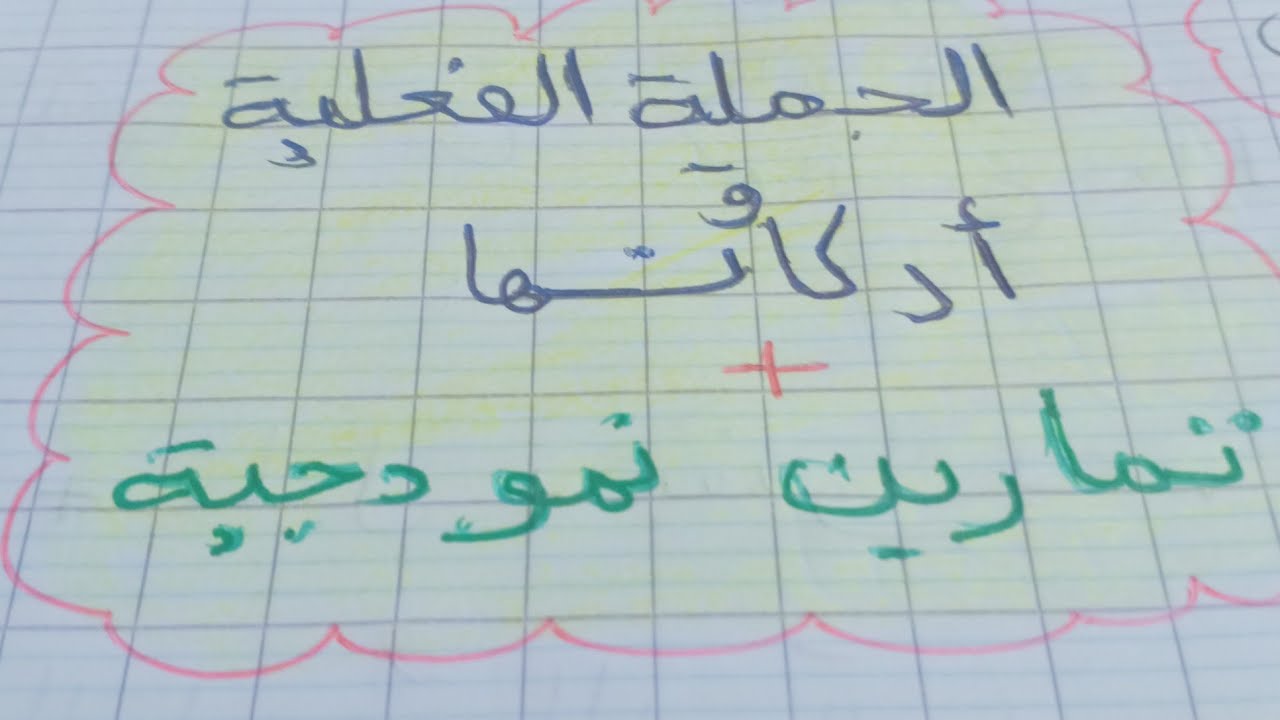 الجملة الفعلية
وَ
أركانها
+
تمارين نمودجية